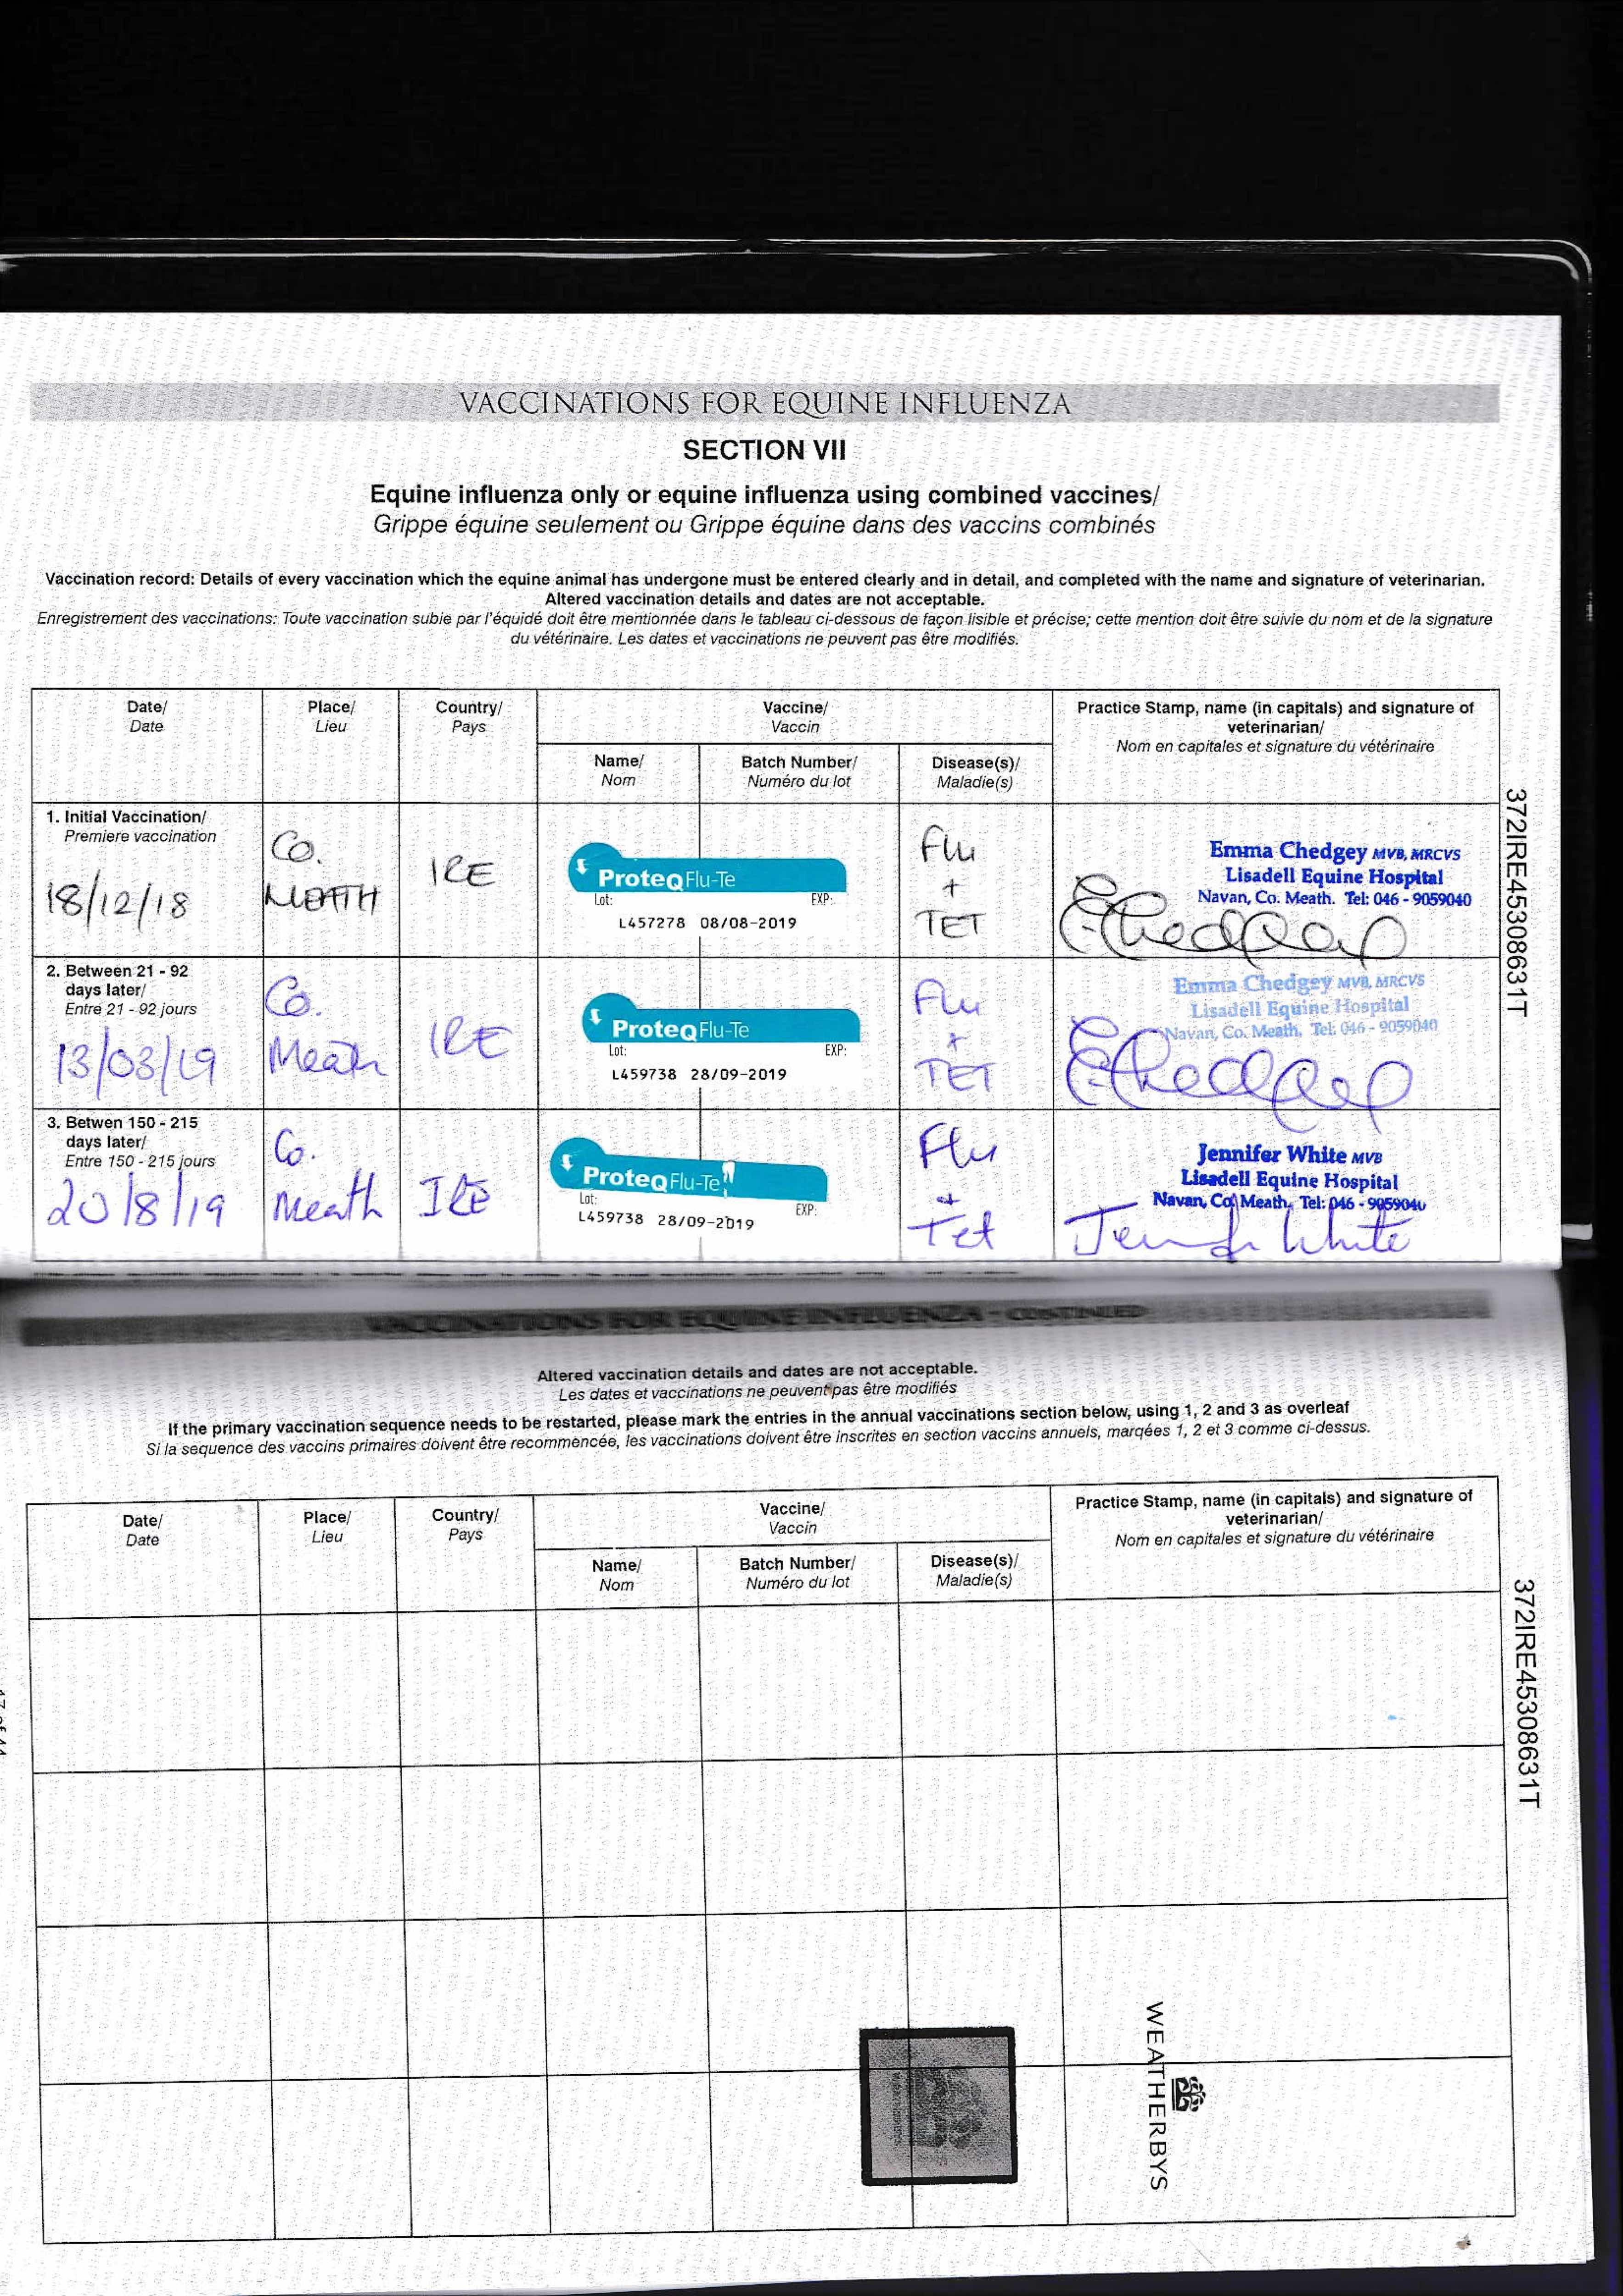 VACCINATIONS FOR EQUINE INFLUENZA
SECTION VII
Equine influenza only or equine influenza using combined vaccines/
Grippe équine seulement ou Grippe équine dans des vaccins combinés
Vaccination record: Details of every vaccination which the equine animal has undergone must be entered clearly and in detail, and completed with the name and signature of veterinarian.
Altered vaccination details and dates are not acceptable.
Enregistrement des vaccinations: Toute vaccination subie par l'équidé doit être mentionnée dans le tableau ci-dessous de façon lisible et précise; cette mention doit être suivie du nom et de la signature
du vétérinaire. Les dates et vaccinations ne peuvent pas être modifiés.
Date/
Date
Place/
Lieu
Country/
Pays
Vaccine/
Vaccin
Practice Stamp, name (in capitals) and signature of
veterinarian/
Nom en capitales et signature du vétérinaire
Name/
Nom
Batch Number/
Numéro du lot
Disease(s)/
Maladie(s)
1. Initial Vaccination/
Premiere vaccination
18/12/18
Co.
MEATH
IRE
ProteqFlu-Te
Lot: EXP:
L457278 08/08-2019
Flu
+
TET
Emma Chedgey MVB, MRCVS
Lisadell Equine Hospital
Navan, Co. Meath. Tel: 046 - 9059040
2. Between 21 - 92
days later/
Entre 21 - 92 jours
13/03/19
Co.
Meath
IRE
ProteqFlu-Te
Lot: EXP:
L459738 28/09-2019
Flu
+
TET
Emma Chedgey MVB, MRCVS
Lisadell Equine Hospital
Navan, Co. Meath. Tel: 046 - 9059040
3. Betwen 150 - 215
days later/
Entre 150 - 215 jours
20/8/19
Co.
Meath
IRE
ProteqFlu-Te
Lot: EXP:
L459738 28/09-2019
Flu
+
Tet
Jennifer White MVB
Lisadell Equine Hospital
Navan, Co. Meath. Tel: 046 - 9059040
Jennifer White
372IRE45308631T
VACCINATIONS FOR EQUINE INFLUENZA - CONTINUED
Altered vaccination details and dates are not acceptable.
Les dates et vaccinations ne peuvent pas être modifiés
If the primary vaccination sequence needs to be restarted, please mark the entries in the annual vaccinations section below, using 1, 2 and 3 as overleaf
Si la sequence des vaccins primaires doivent être recommencée, les vaccinations doivent être inscrites en section vaccins annuels, marqées 1, 2 et 3 comme ci-dessus.
Date/
Date
Place/
Lieu
Country/
Pays
Vaccine/
Vaccin
Practice Stamp, name (in capitals) and signature of
veterinarian/
Nom en capitales et signature du vétérinaire
Name/
Nom
Batch Number/
Numéro du lot
Disease(s)/
Maladie(s)
372IRE45308631T
WEATHERBYS